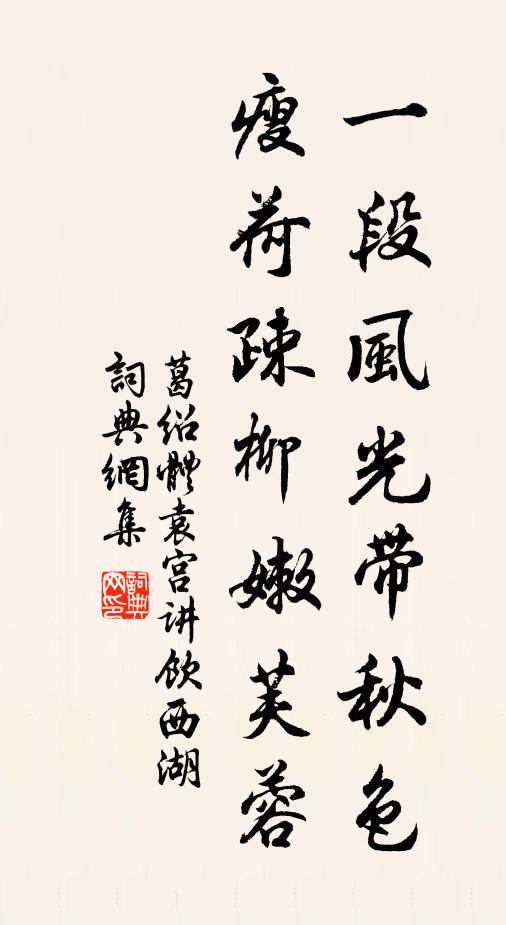 一段風光帶秋色
瘦荷疎柳嫩芙蓉
葛紹體袁宫讲飲西湖
詞典網集
詞典网印